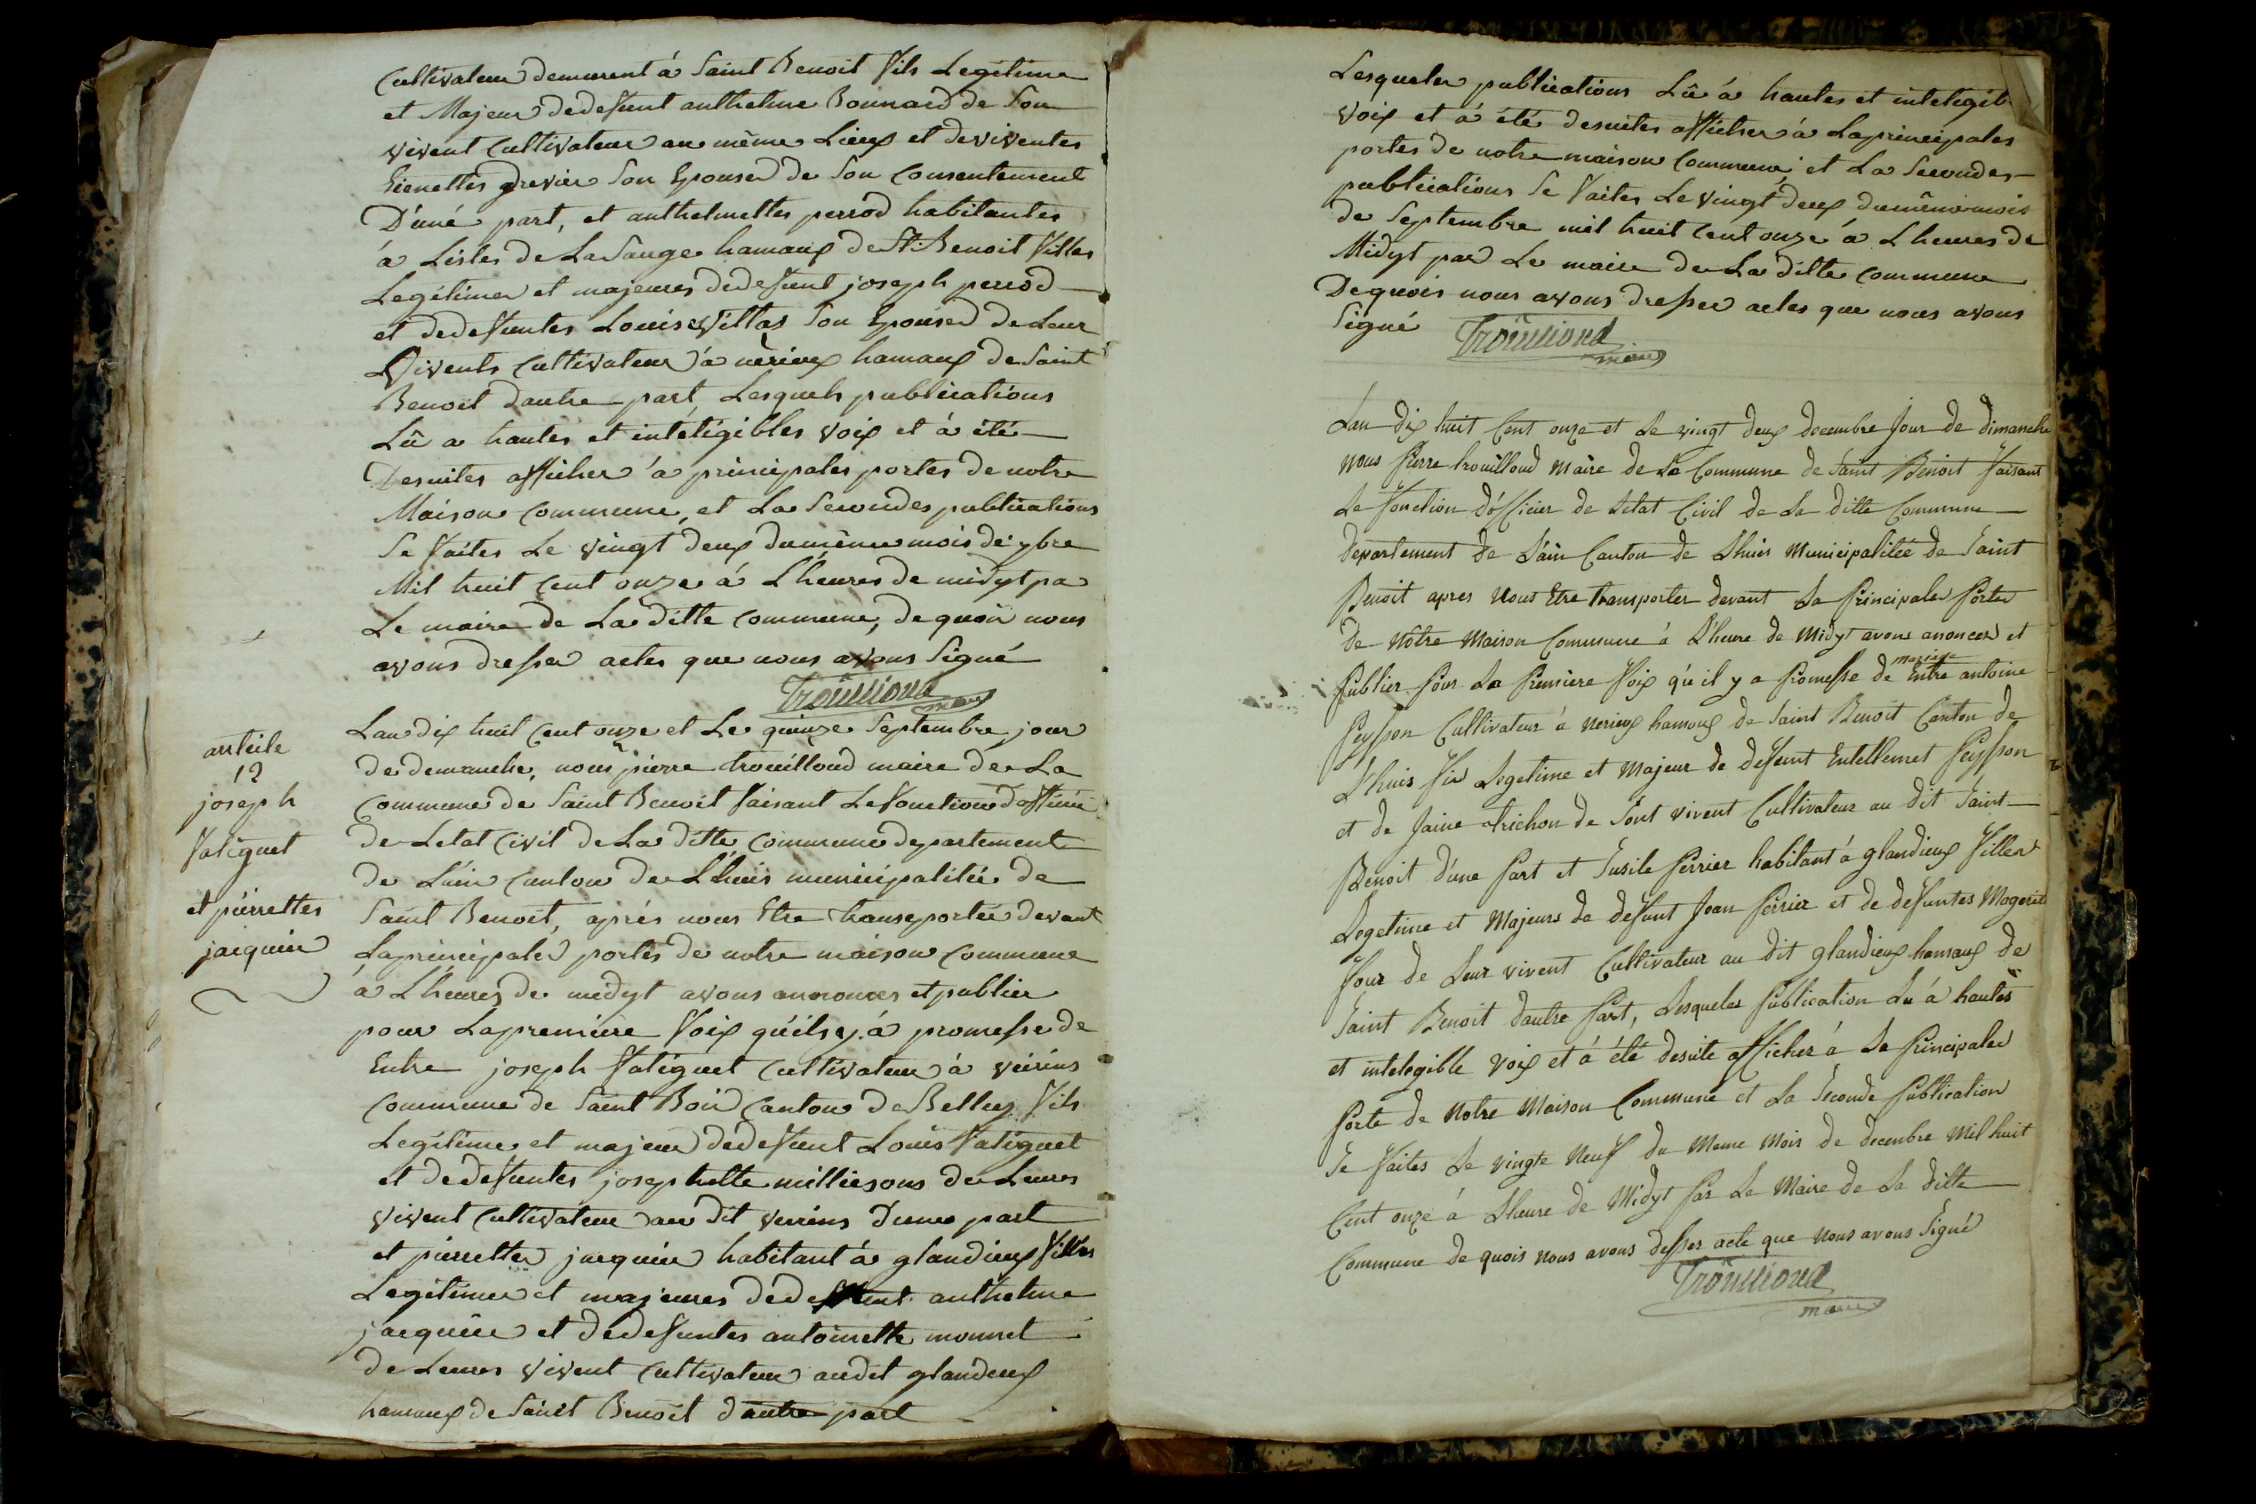 Cultivateur demeurent á Saint Benoit fils Legitime
et Majeur dedefunt anthelme Bonnard de Son
vivent Cultivateur au même Lieux et deviventes
Eienettes grevier Son Epouse de Son Consentement
D'une part, et anthelmettes perrod habitantes
á Lisles de LaSauge hamaux de St. Benoit filles
Legitimes et majeures dedefunt joseph perrod
et dedefuntes Louise Villas Son Epouse de Leur
vivents Cultivateur á nerieux hamaux de Saint
Benoit dautre part Lesquels publications
Lû a hautes et intéligibles voix et à été
Desuites afficher á principales portes de notre
Maison commune, et La Secondes publications
Se faites Le vingt deux dumême mois de 7bre
Mil huit Cent onze á Lheures de midyt pa
Le maire de La ditte commune, de quoi nous
avons dresser actes que nous avons Signé
Trouilloud
maire
article
12
joseph
fatiguet
et pierrettes
jacquier
Lan dix huit Cent onze et Le quinze Septembre jour
de demanche, nous pierre trouilloud maire de La
Commune de Saint Benoit faisant Lefonction d'officié
de Letat Civil de La ditte commune departement
de Lain Canton de Lhuis municipalitée de
Saint Benoit, aprés nous Etre transportée devant
Laprincipales portes de notre maison commune
á Lheures de midyt avons annonces et publier
pour Lapremiere foix quils y á promesse de
Entre joseph fatiguet Cultivateur á veirins
Commune de Saint Bois Canton de Belley fils
Legitime et majeur dedefunt Louis fatiguet
et dedefuntes josephette milliesons de Leures
vivent Cultivateur au dit verrins d'une part
et pierrettes jacquier habitant á glandieux filles
Legitimes et majeures dedefunt anthelme
jacquier et dedefuntes antoinette mouret
de Leures vivent Cultivateur audit glandeux
hamaux de Saint Benoit dautre part
Lesqueles publications Lû á hautes et inteligib
voix et á été desuites afficher á Laprincipales
portes de notre maison Commune, et La Secondes
publications Se faites Le vingt deux dumême mois
de Septembre mil huit Cent onze á Lheures de
Midyt par Le maire de La ditte commune
De quois nous avons dresser actes que nous avons
Signé Trouilloud
maire
Lan dix huit Cent onze et Le vingt deux decembre Jour de dimanche
nous pierre trouilloud Maire de La Commune de Saint Benoit faisant
La fonction d'officier de Létat Civil de La ditte Commune
Departement de Lain Canton de Lhuis Municipalitée de Saint
Benoit apres Nous Etre transporter devant La principales Portes
de Nôtre Maison Commune á L'heure de Midyt avons anoncer et
publier pour La premiere foix qu'il y a promesse de mariage Entre antoine
peysson Cultivateur á Nerieux hamoux de Saint Benoit Canton de
Lhuis fis Legetime et Majeur de defeunt Entellemet peysson
et de Jaine trichon de Sont vivent Cultivateur au dit Saint
Benoit d'une part et Susile perrier habitant á glandieux filler
Legetime et Majeurs de defunt Jean perrier et de defuntes Mogerit
Jour de Leur vivent Cultivateur au dit glandieux hamaux de
Saint Benoit dautre part, Lesqueles publication Lu á hautes
et intelegible voix et á été desuite afficher á La principales
porte de Notre Maison Commune et La Seconde publication
Se faites Le vingte Neuf du Meme Mois de decembre Mil huit
Cent onze á Lheure de Midyt par Le Maire de La ditte
Commune de quois nous avons desser acte que Nous avons Signé
Trouilloud
maire